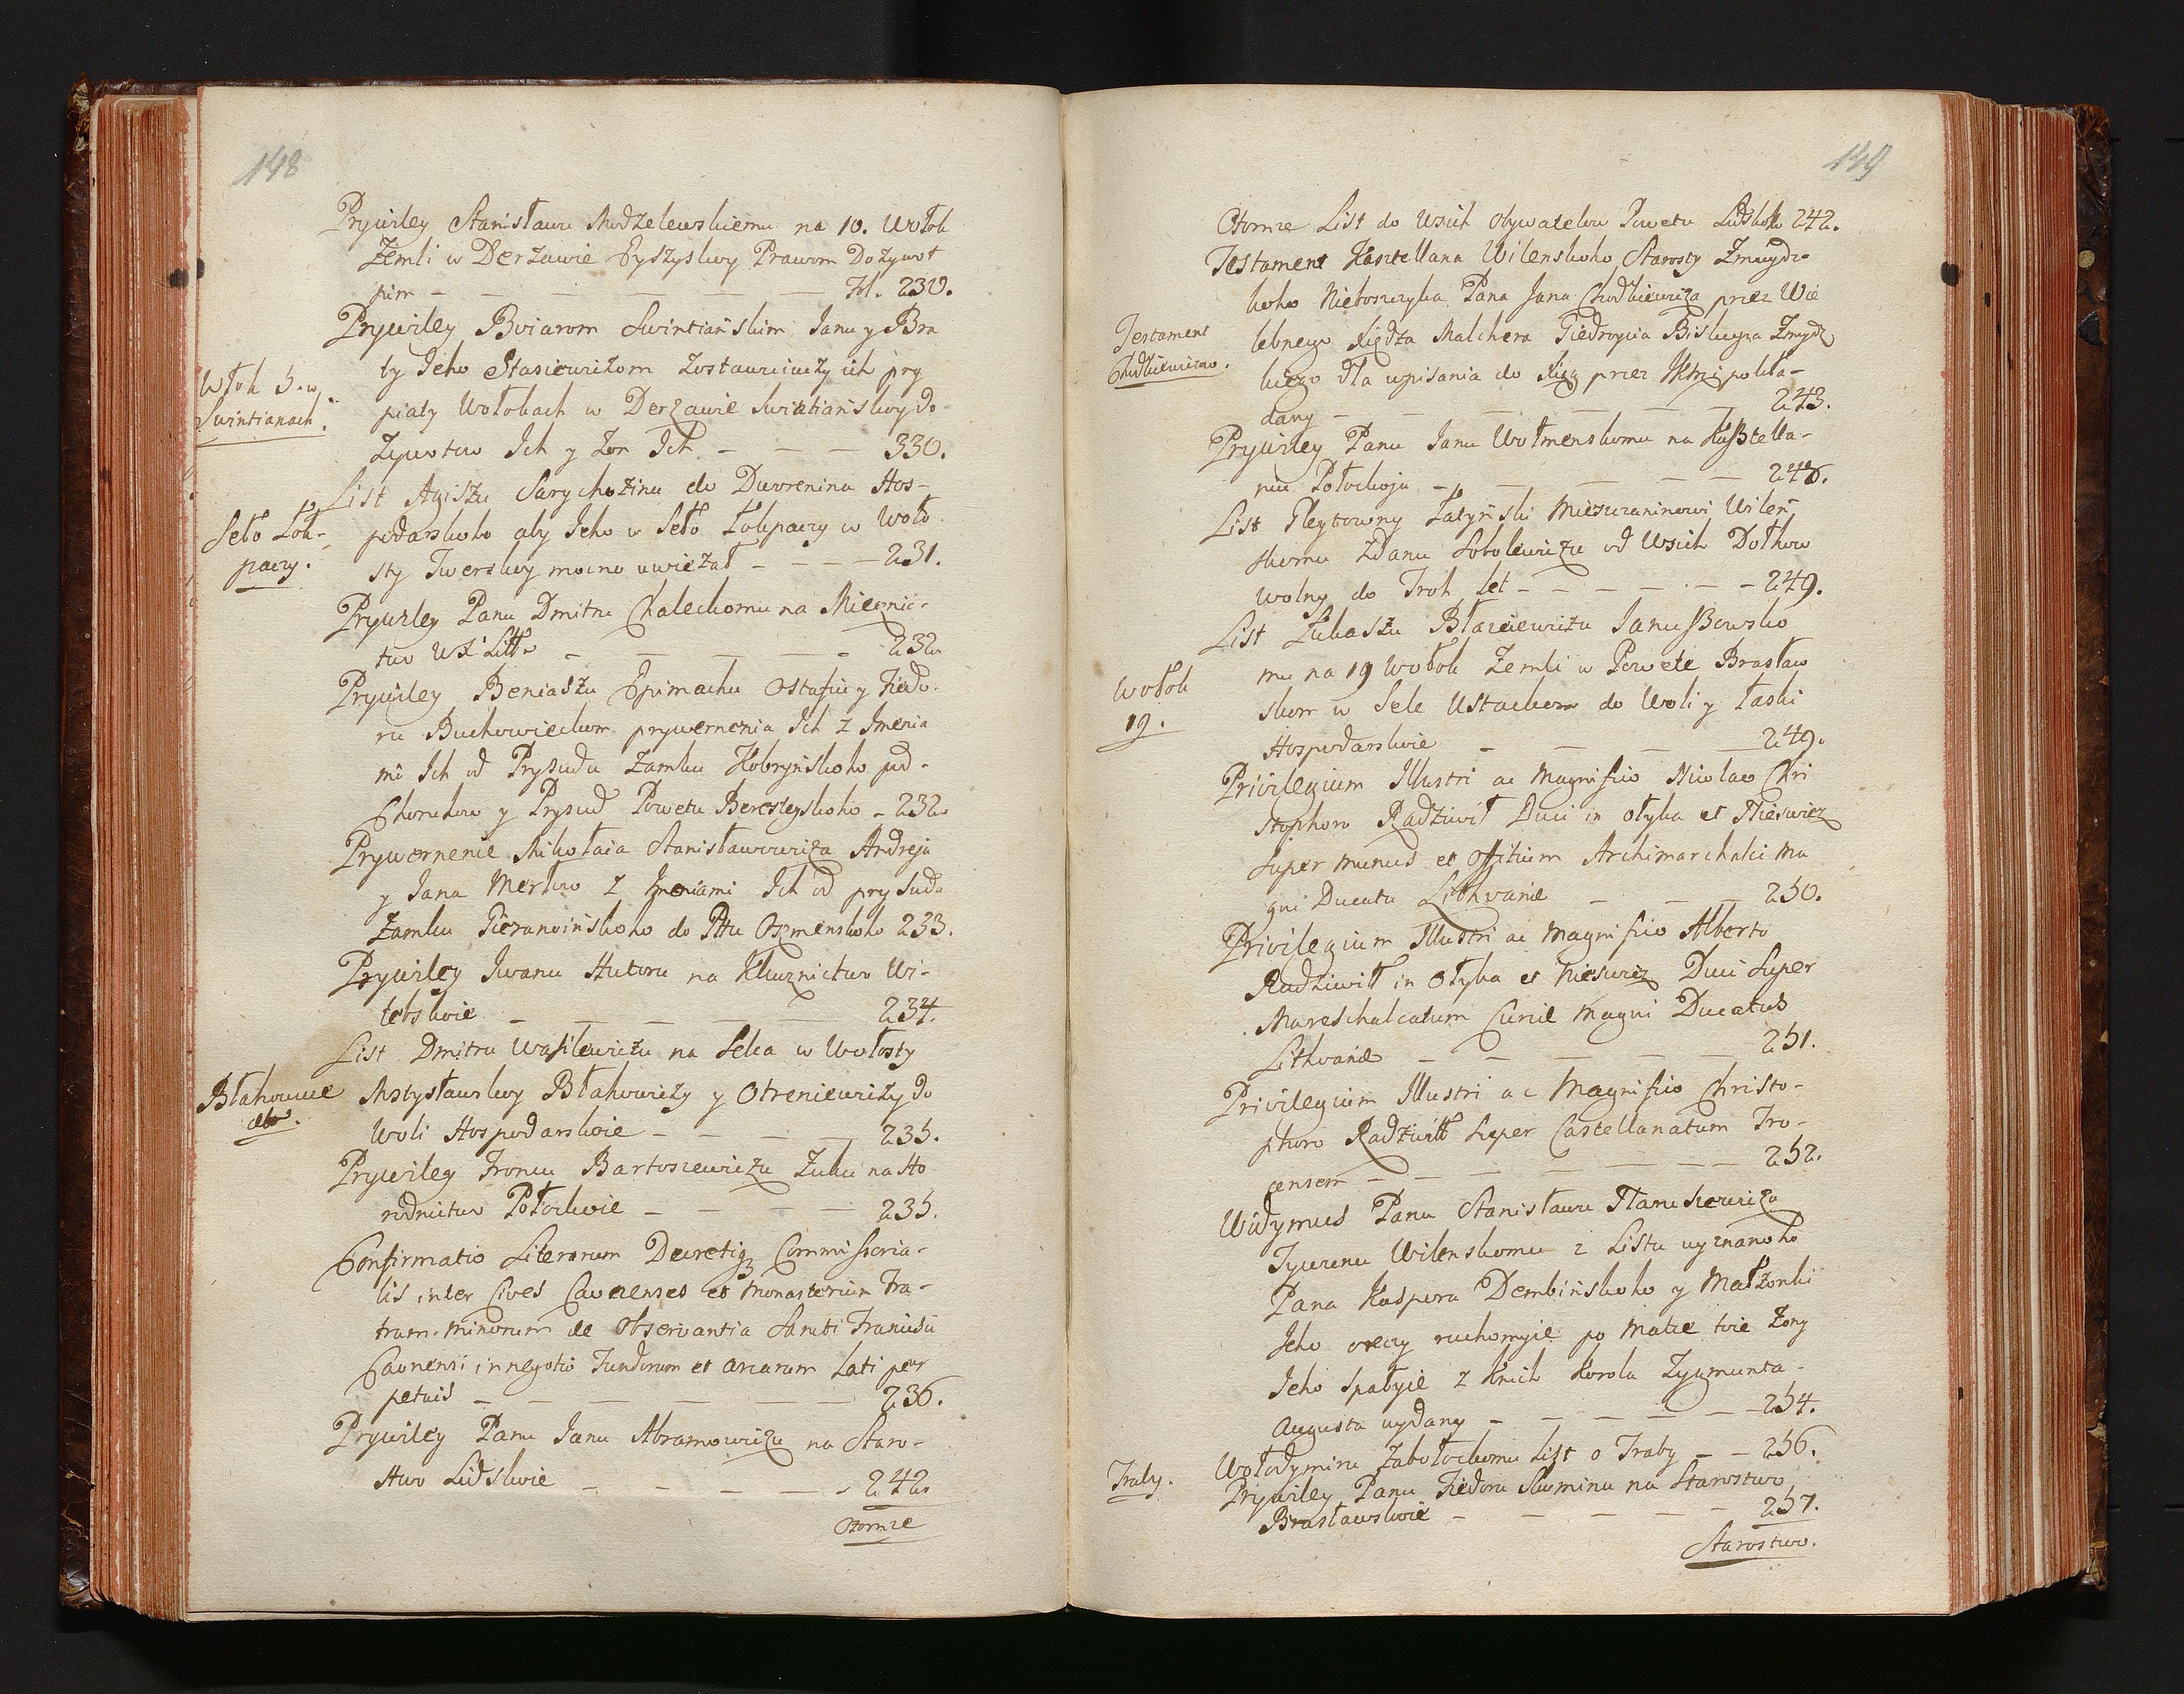 148
Prywiley Stanisławu Modzelewskiemu na 10. Wołok
Zemli w Derżawie Eyszyskoy Prawom Dożywot
nim — — — — — — fol. 230.
Prywiley Boiarom Swintiańskim Janu y Bra
ty Jeho Stasiewiczom zostawuiuczy ich pry
Włok 5. w
Swintianach.
piaty Wołokach w Derżawie Swintiańskoy do
Żywotow Ich y Żon Ich — — — 330.
List Agiszu Sarychozinu do Dworenina Hos-
Seło Łok-
pacy.
podarskoho aby Jeho w Seło Łokpacy w Woło
sty Twerskoy mocno uwiezał — — — 231.
Prywiley Panu Dmitru Chaleckomu na Miecznic-
two WX Litt — — — — — 232.
Prywiley Beniaszu Epimachu Ostafiu y Fiedo-
ru Buchowieckom prywernenia Ich z Imenia
mi Ich od Prysudu Zamku Kobryńskoho pod
Choruhow y Prysud Powetu Beresteyskoho - 232.
Prywernenie Mikołaia Stanisławowicza Andreja
y Jana Merlow z Imeniami Ich od prysudu
Zamku Gieranoińskoho do Pttu Oszmenskoho 233.
Prywiley Iwanu Hutoru na Kluznictwo Wi-
tebskoie — — — — — 234.
List Dmitru Wasilewiczu na Selca w Wołosty
Błahowicze
Mstysławskoy Błahowiczy y Otreniewiczy do
Woli Hospodarskoie — — — — 235.
Prywiley Ironu Bartoszewiczu Żuku na Ho
rodnictwo Połockoie — — — — 235.
Confirmatio Literarum Decretiq3 Commissoria-
lis inter Cives Caunenses et Monasterium Fra-
trum Minorum de Observantia Sancti Francisci
Caunensi in negotio Fundorum et arearum Lati per
petuis — — — — — — 236.
Prywiley Panu Janu Abramowiczu na Staro-
stwo Lidskoie — — — — - 242.
Otomze
149
Otomze List do Wsich Obywatelow Powetu Lidskoho 242.
Testament Kasztellana Wilenskoho Starosty Zmuydz-
koho Nieboszczyka Pana Jana Chodkiewicza przez Wie
Testament
Chodkiewiczow.
lebnego Xiędza Malchera Giedroycia Biskupa Zmuydz
kiego dla upisania do Xiąg przez pokła-
dany — — — — — — 243.
Prywiley Panu Janu Wołmenskomu na Kasztella-
niu Połockoju — — — — — 248.
List Gleytowny Łatyński Miesczaninowi Wilen
skomu Zdanu Sobolewiczu od Wsich Dołhow
wolny do Troh let — — — — - 249.
List Łukaszu Błazieiewiczu Janussowsko
mu na 19 Wołok Zemli w Powete Brasław
Wołok
19.
skom w Sele Ustackom do Woli y łaski
Hospodarskoie — — — — 249.
Privilegium Illustri ac Magnifico Nicolao Chri
stophoro Radziwił Duci in Ołyka et Nieswicz
super munus et Offitium Archimarchalci Ma
gni Ducatu Lithvaniæ — — — 250.
Privilegium Illustri ac Magnifico Alberto
Radziwiłł in Ołyka et Nieswicz Duci Super
Mareschalcatum Curiæ Magni Ducatus
Lithvaniæ — — — — — 251.
Privilegium Illustri ac Magnifico Christo-
phoro Radziwiłł Super Castellanatum Tro-
censem — — — — — — 252.
Widymus Panu Stanisławu Hamszewiczu
Tywunu Wilenskomu z Listu wyznanoho
Pana Kaspera Dembińskoho y Małżonki
Jeho reczy ruchomyie po Matce toie Żony
Jeho Spałyie z Knih Korola Zygmunta
Augusta wydany — — — — — 254.
Traby.
Wołodymiru Zabołockomu List o Traby — — 256.
Prywiley Panu Fiedoru Skuminu na Starostwo
Brasławskoie — — — — — 257.
Starostwo.